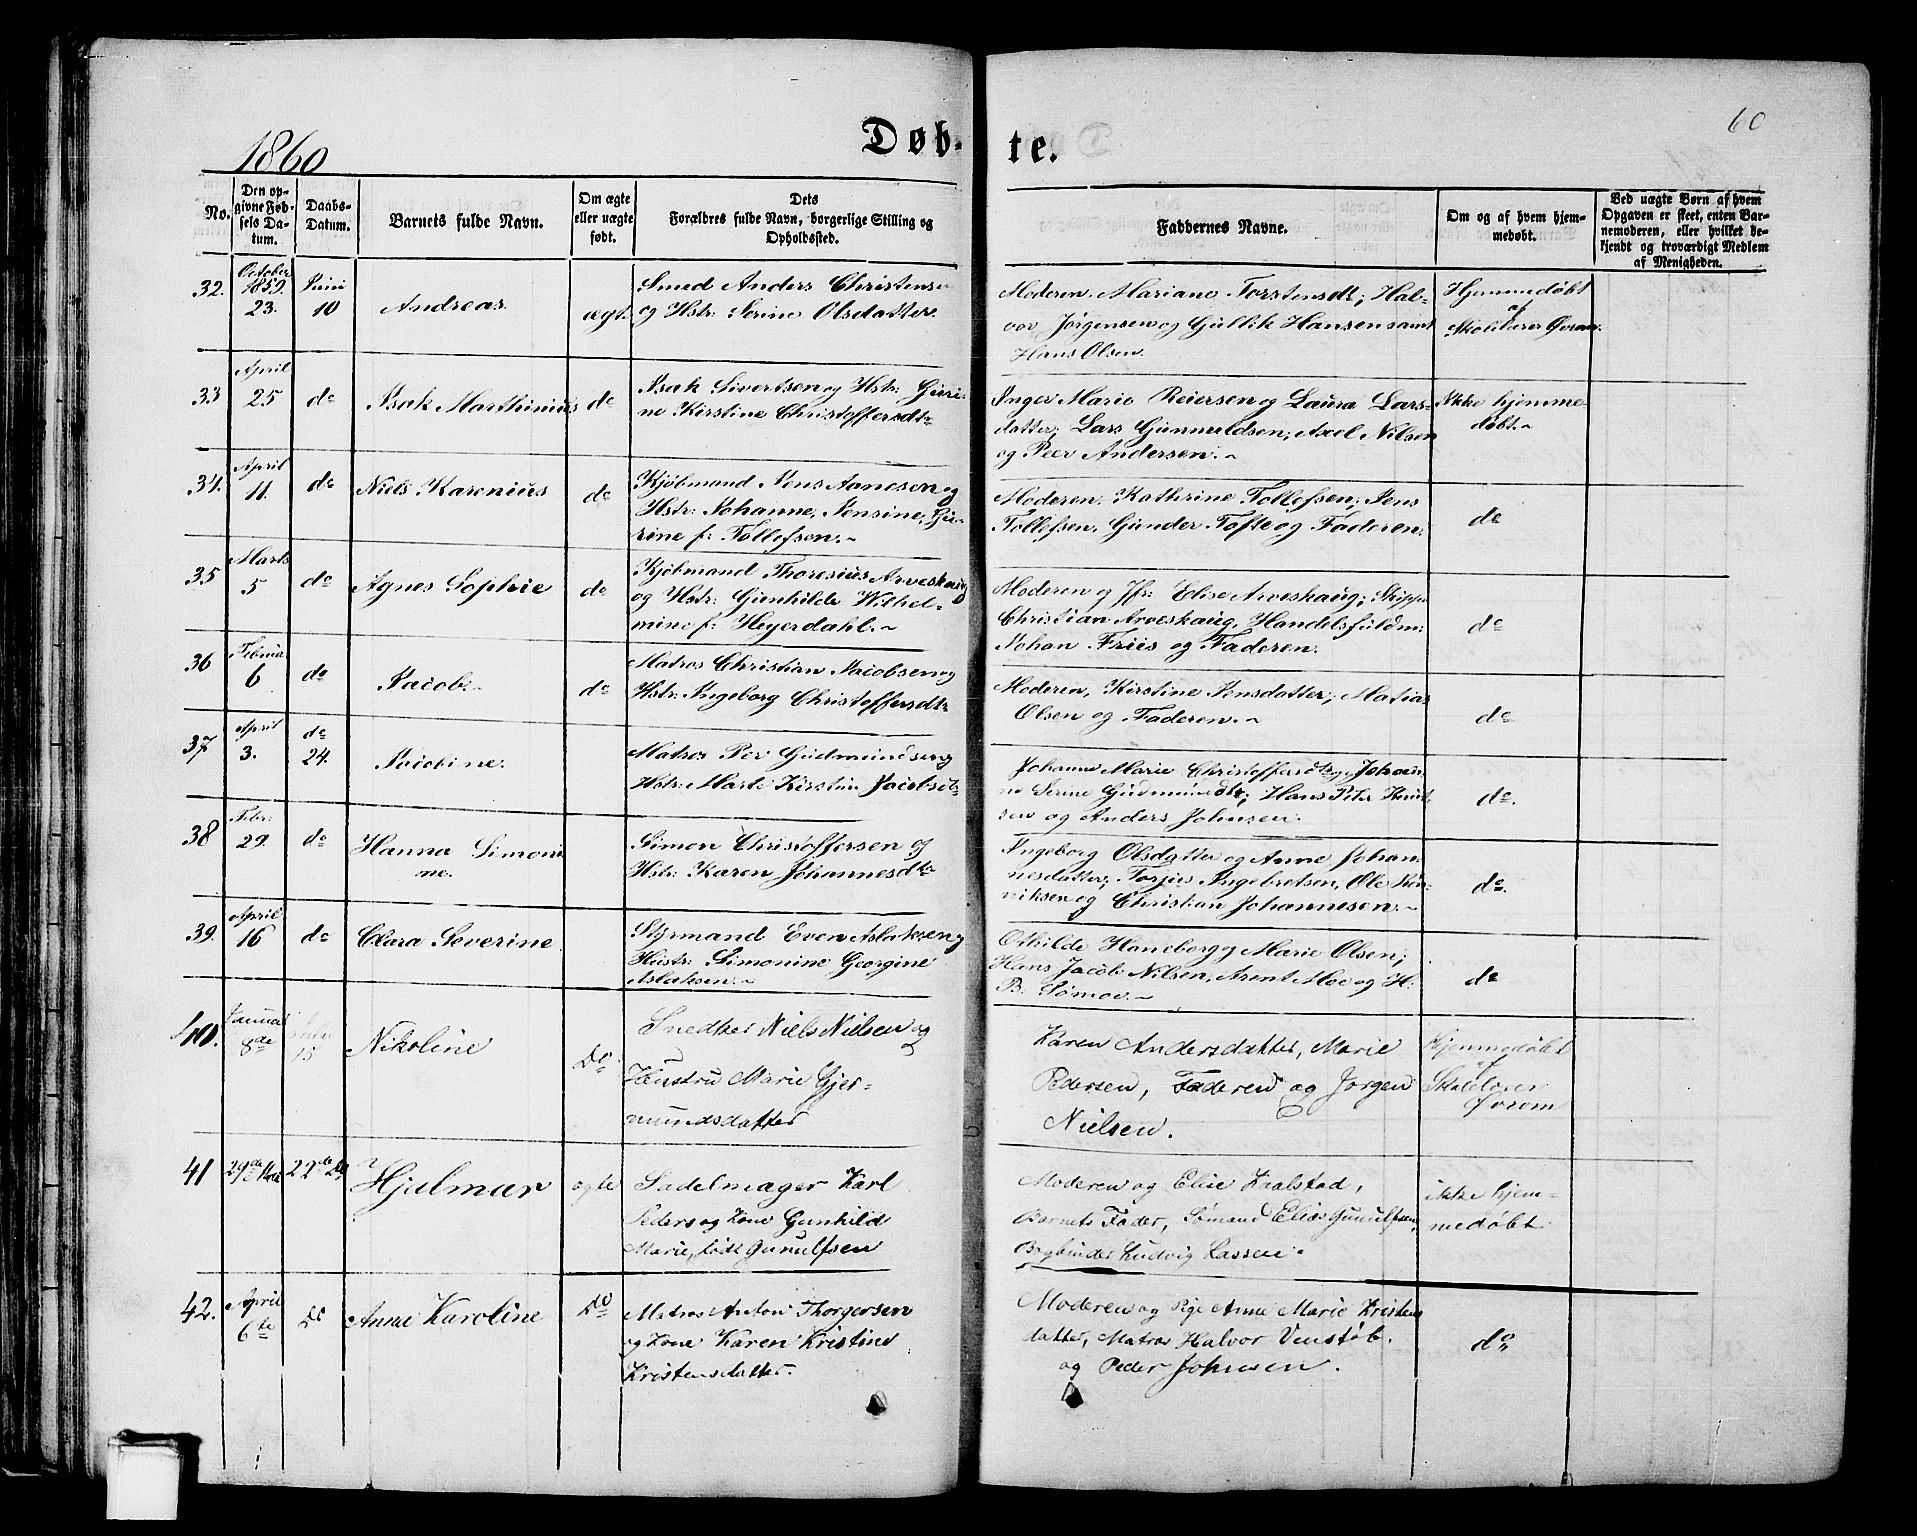 1860
Døb-
te.
60
No.
Den op-
givne Fød-
sels Da-
tum.
Daabs-
Datum.
Barnets fulde Navn.
Om ægte
eller uægte
født.
Dets
Forældres fulde Navn, borgerlige Stilling og
Opholdssted.
Faddernes Navne.
Om og af hvem hjem-
medøbt.
Ved uægte Børn af hvem
Opgaven er skeet, enten Bar-
nemoderen, eller hvilket be-
kjendt og troværdigt Medlem
af Menigheden.
32.
October
1859.
23.
Juni
10
Andreas.
ægt.
Smed Anders Christensen
og Hstr: Serine Olsdatter.
Moderen. Mariane Torstensdt; Hal-
vor Jørgensen og Gullik Hansen samt
Hans Olsen.
Hjemmedøbt
af
Skolelærer
33
April
25
do
Isak Marthinius
do
Isak Sivertsen og Hstr: Guri-
ne Kirstine Christoffersdtr
Inger Marie Reiersen og Laura Lars-
datter; Lars Gunnuldsen, Axel Nilsen
og Peer Andersen.~
Ikke hjemme-
døbt.~
34.
April
11.
do
Niels Karenius
do
Kjøbmand Jens Aanesen og
Hstr: Johanne, Jensine, Gu-
rine f: Tollefsen.~
Moderen. Kathrine Tollefsen; Jens
Tollefsen, Gunder Tofte og Faderen.
do
35
Marts
5
do
Agnes Sophie
do
Kjøbmand Thoresius Arveskoug
og Hstr: Gunhilde Wilhel-
mine f: Heyerdahl.~
Moderen og Jfr: Elise Arveskaug; Skipper
Christian Arveskaug, Handelsfuldm:
Johan Friis og Faderen.
do
36
Februa
6
do
Jacob.~
do
Matros Christian Jacobsen og
Hstr: Ingeborg Christoffersdtr
Moderen, Kirstine Jensdatter; Matias
Olsen og Faderen.~
do
37
April
3.
do
24.
Jacobine.
Matros Per Gudmundsen og
Hstr: Marte Kirstine Jacobsdtr
Johanne Marie Christoffersdtr, Johan-
ne Serine Gudmundsdtr; Hans Peter Knut-
sen og Anders Johnsen.
do.
38
Febr:
29.
do
Hanna Simoni
ne.
Simon Christoffersen og
Hstr: Karen Johannesdtr
Ingeborg Olsdatter og Anne Johan-
nesdatter; Torjus Ingebretsen, Ole Hen-
riksen og Christian Johannesen.~
do.
39.
April
16
do
Clara Severine
Styrmand Even Aslaksen og
Hustr: Simonine Georgine
Aslaksen.~
Othilde Haneborg og Marie Olsen;
Hans Jacob Nilsen, Arent Moe og H:
B: Sømoe.~
do
40.
Januar
8de
15
Nikoline
Do.
Snedker Niels Nielsen og
Hustru Marie Gjer-
mundsdatter
Karen Andersdatter, Marie
Pedersen, Faderen og Jørgen
Nielsen.
Hjemmedøbt
af
Skolelærer
41
29de
22de
Hjalmar
ægte
Sadelmager Karl
Peders og Kone Gunhild
Marie, født Gunulfsen
Moderen og Elise Kaalstad,
Barnets Fader, Sømand Elias Gunulfsen,
Bogbinder Ludvig Lassen.
ikke hjem-
medøbt.
42.
April
6te
Do
Anne Karoline
Do
Matros Anton Thorgersen
og Kone Karen Kristine
Kristensdatter.
Moderen og Pige Anne Marie Kristens
datter, Matros Halvor Venstøb.
og Peder Johnsen.
do